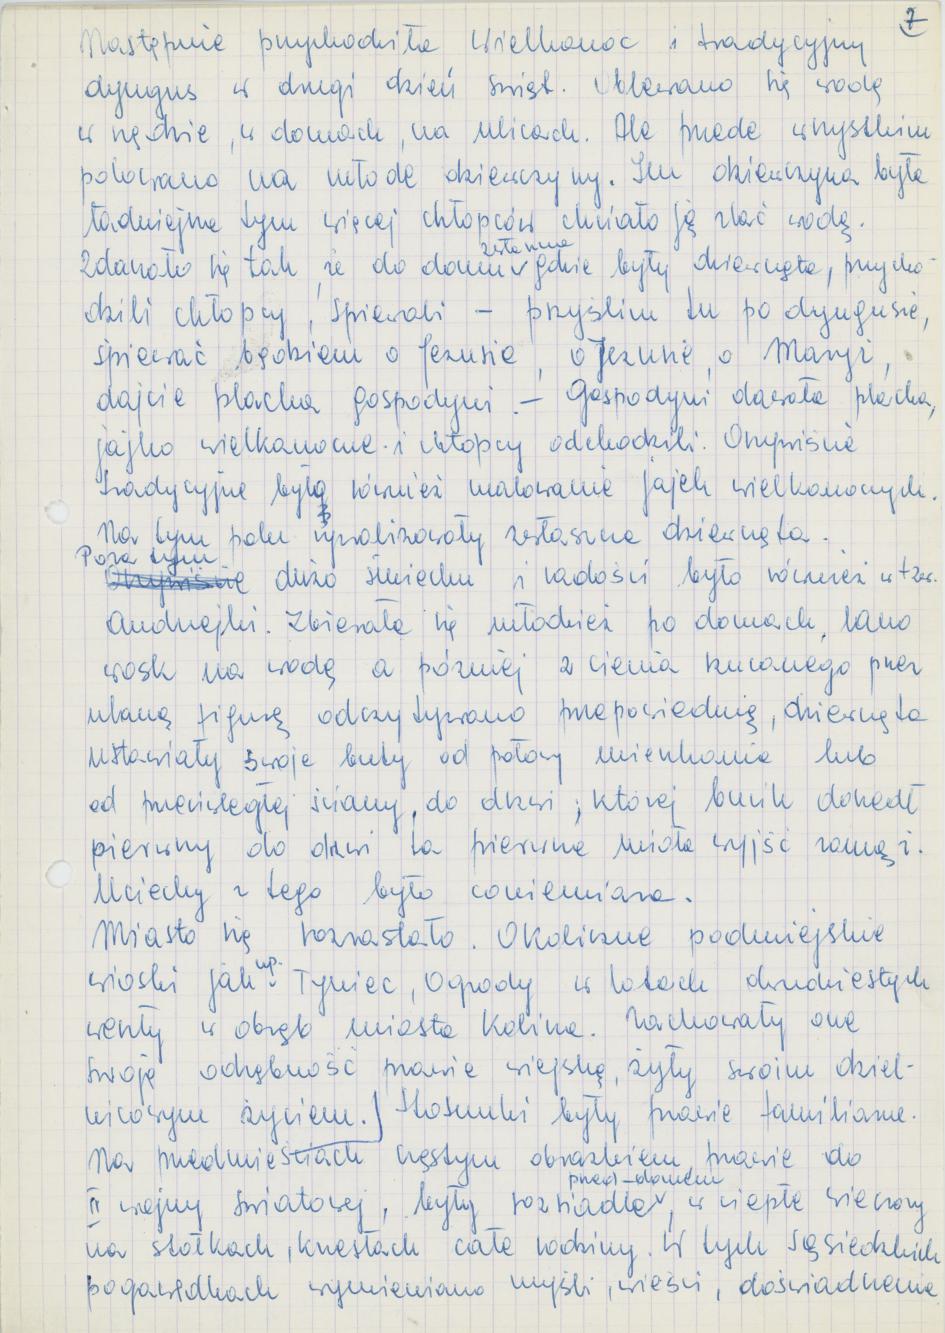 7
Następnie przychodziła Wielkanoc i tradycyjny
dyngus w drugi dzień świąt. Oblewano się wodą
wszędzie, w domach, na ulicach. Ale przede wszystkim
polowano na młode dziewczyny. Im dziewczyna była
ładniejsza tym więcej chłopców chciało ją zlać wodą.
Zdarzało się tak, że do domu zwłaszcza gdzie były dziewczęta, przycho-
dzili chłopcy, śpiewali – przyślim tu po dyngusie,
śpiewać będziem o Jezusie, o Jezusie, o Maryi,
dajcie placka gospodyni. – Gospodyni dawała placka,
jajko wielkanocne i chłopcy odchodzili. Oczywiście
tradycyjne było również malowanie jajek wielkanocnych.
Na tym polu rywalizowały zwłaszcza dziewczęta.
Poza tym dużo śmiechu i radości było również w tzw.
Andrzejki. Zbierała się młodzież po domach, lano
wosk na wodę a później z cienia rzucanego przez
ulaną figurę odczytywano przepowiednię, dziewczęta
ustawiały swoje buty od połowy mieszkania lub
od przeciwległej ściany, do drzwi, której bucik doszedł
pierwszy do drzwi ta pierwsza miała wyjść za mąż.
Uciechy z tego było co niemiara.
Miasto się rozrastało. Okoliczne podmiejskie
wioski jak np. Tyniec, Ogrody w latach dwudziestych
weszły w obręb miasta Kalisza. Zachowały one
swoją odrębność prawie wiejską, żyły swoim dziel-
nicowym życiem. Stosunki były prawie familiarne.
Na przedmieściach częstym obrazkiem prawie do
II wojny światowej, były rozsiadłe przed domem, w ciepłe wieczory
na stołkach, krzesłach całe rodziny. W tych sąsiedzkich
pogawędkach wymieniano myśli, wieści, doświadczenia